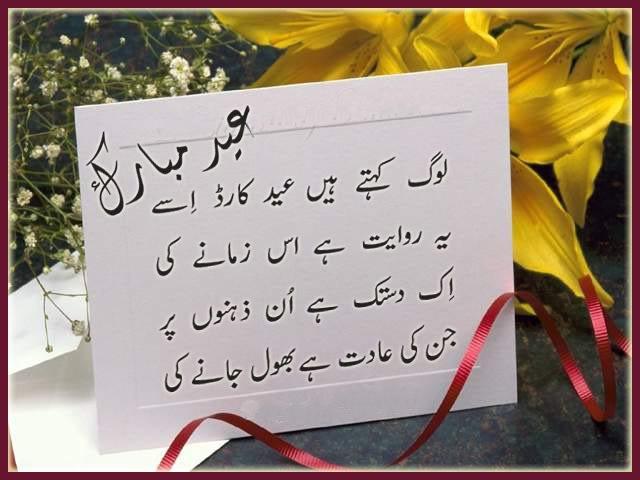 عید مبارک
لوگ کہتے ہیں عید کارڈ اِسے
یہ روایت ہے اس زمانے کی
اِک دستک ہے اُن ذہنوں پر
جن کی عادت ہے بھول جانے کی